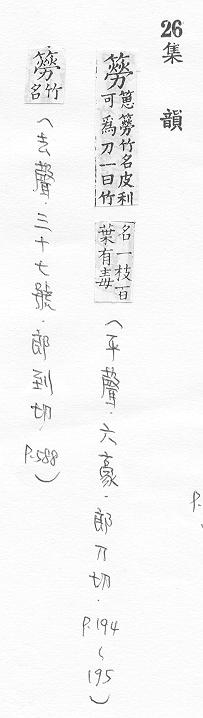 26集韻
簩 簩竹名皮利可為刀一曰竹
名一枝百葉有毒
（平聲．六豪．郎刀切．P.194~195）
簩 竹名
（去聲．三十七號．郎到切．P.588）
P.